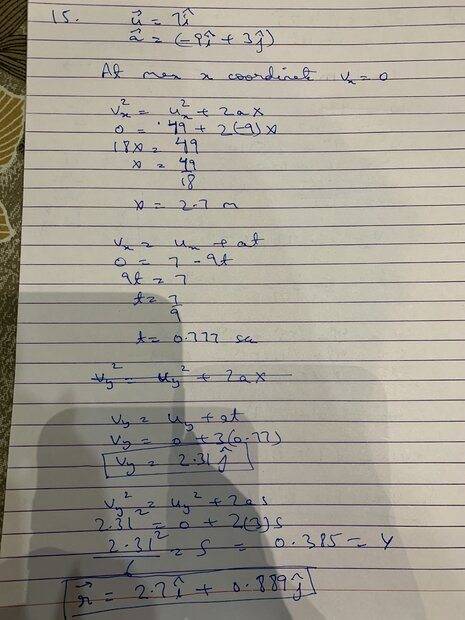 15. u⃗ = 7î
a⃗ = (-9î + 3ĵ)
At max x coordinate vₓ = 0
vₓ² = uₓ² + 2ax
0 = 49 + 2(-9)x
18x = 49
x = 49/18
x = 2.7 m
vₓ = uₓ + at
0 = 7 - 9t
9t = 7
t = 7/9
t = 0.777 sec
v_y² = u_y² + 2ax
v_y = u_y + at
v_y = 0 + 3(0.77)
v_y = 2.31 ĵ
v_y² = u_y² + 2as
2.31² = 0 + 2(3)s
2.31²/6 = s = 0.385 = y
r⃗ = 2.7î + 0.889ĵ